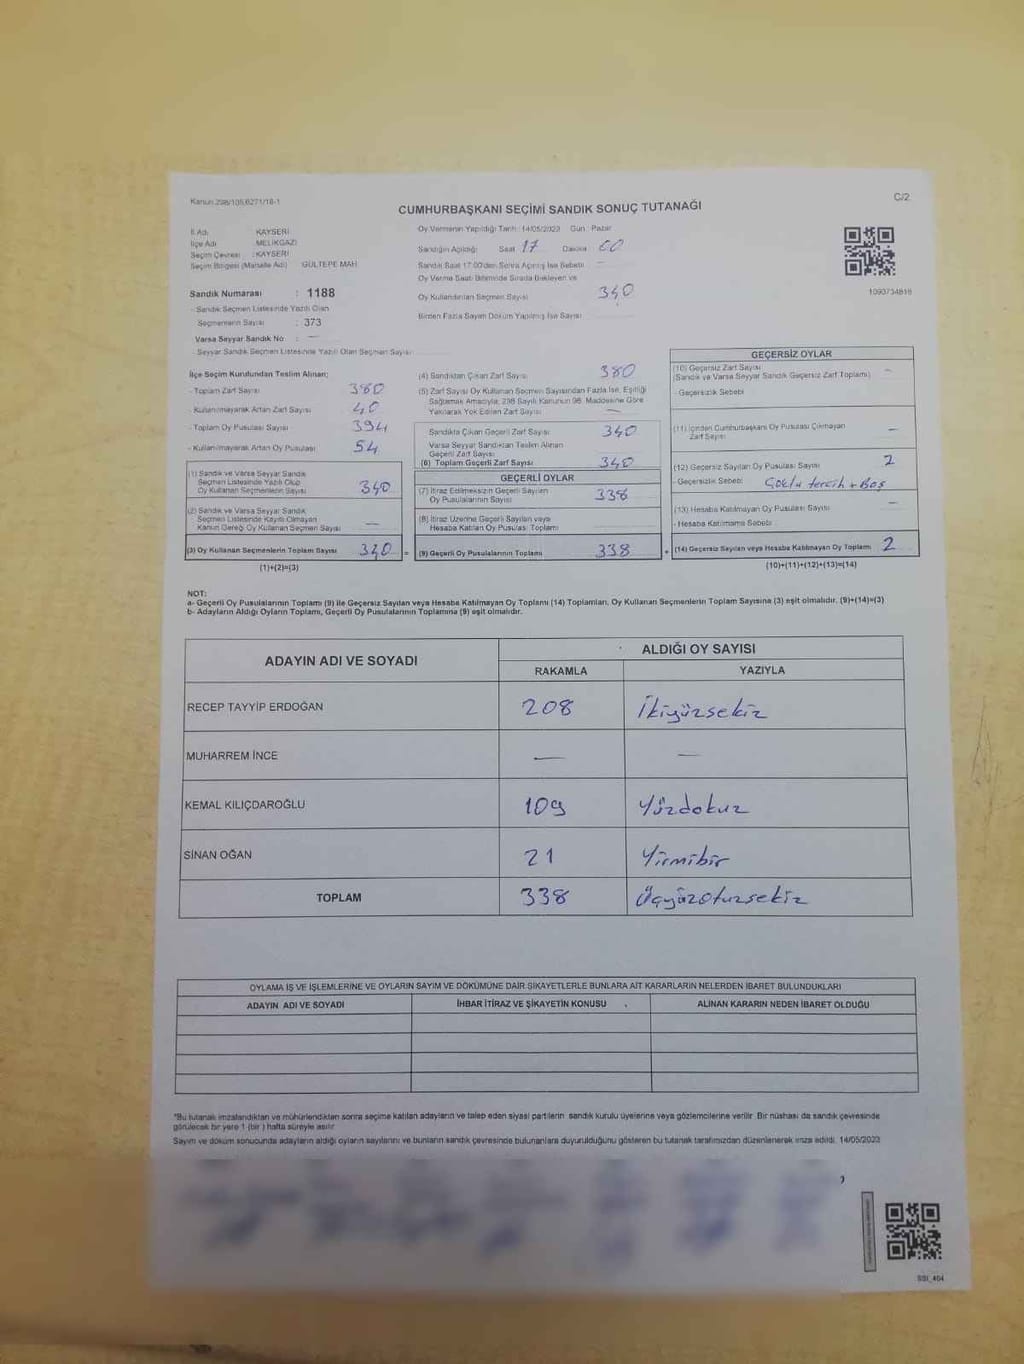 Kanun 298/105,6271/18-1
C/2
CUMHURBAŞKANI SEÇİMİ SANDIK SONUÇ TUTANAĞI
İl Adı : KAYSERİ
İlçe Adı : MELİKGAZİ
Seçim Çevresi : KAYSERİ
Seçim Bölgesi (Mahalle Adı) : GÜLTEPE MAH.
Sandık Numarası : 1188
- Sandık Seçmen Listesinde Yazılı Olan
Seçmenlerin Sayısı : 373
Varsa Seyyar Sandık No : —
- Seyyar Sandık Seçmen Listesinde Yazılı Olan Seçmen Sayısı
Oy Vermenin Yapıldığı Tarih : 14/05/2023 Gün : Pazar
Sandığın Açıldığı Saat 17 Dakika 00
Sandık Saat 17:00'den Sonra Açılmış İse Sebebi —
Oy Verme Saati Bitiminde Sırada Bekleyen ve
Oy Kullandırılan Seçmen Sayısı 340
Birden Fazla Sayım Döküm Yapılmış İse Sayısı
1090734818
İlçe Seçim Kurulundan Teslim Alınan;
- Toplam Zarf Sayısı 380
- Kullanılmayarak Artan Zarf Sayısı 40
- Toplam Oy Pusulası Sayısı 394
- Kullanılmayarak Artan Oy Pusulası 54
(1) Sandık ve Varsa Seyyar Sandık
Seçmen Listesinde Yazılı Olup
Oy Kullanan Seçmenlerin Sayısı 340
(2) Sandık ve Varsa Seyyar Sandık
Seçmen Listesinde Kayıtlı Olmayan
Kanun Gereği Oy Kullanan Seçmen Sayısı —
(3) Oy Kullanan Seçmenlerin Toplam Sayısı 340 =
(1)+(2)=(3)
(4) Sandıktan Çıkan Zarf Sayısı 380
(5) Zarf Sayısı Oy Kullanan Seçmen Sayısından Fazla İse, Eşitliği
Sağlamak Amacıyla, 298 Sayılı Kanunun 98. Maddesine Göre
Yakılarak Yok Edilen Zarf Sayısı —
Sandıkta Çıkan Geçerli Zarf Sayısı 340
Varsa Seyyar Sandıktan Teslim Alınan
Geçerli Zarf Sayısı
(6) Toplam Geçerli Zarf Sayısı 340
GEÇERLİ OYLAR
(7) İtiraz Edilmeksizin Geçerli Sayılan
Oy Pusulalarının Sayısı 338
(8) İtiraz Üzerine Geçerli Sayılan veya
Hesaba Katılan Oy Pusulası Toplamı
(9) Geçerli Oy Pusulalarının Toplamı 338 +
GEÇERSİZ OYLAR
(10) Geçersiz Zarf Sayısı —
(Sandık ve Varsa Seyyar Sandık Geçersiz Zarf Toplamı)
- Geçersizlik Sebebi
(11) İçinden Cumhurbaşkanı Oy Pusulası Çıkmayan
Zarf Sayısı —
(12) Geçersiz Sayılan Oy Pusulası Sayısı 2
- Geçersizlik Sebebi Çoklu tercih + Boş
(13) Hesaba Katılmayan Oy Pusulası Sayısı —
- Hesaba Katılmama Sebebi
(14) Geçersiz Sayılan veya Hesaba Katılmayan Oy Toplamı 2
(10)+(11)+(12)+(13)=(14)
NOT:
a- Geçerli Oy Pusulalarının Toplamı (9) ile Geçersiz Sayılan veya Hesaba Katılmayan Oy Toplamı (14) Toplamları, Oy Kullanan Seçmenlerin Toplam Sayısına (3) eşit olmalıdır. (9)+(14)=(3)
b- Adayların Aldığı Oyların Toplamı, Geçerli Oy Pusulalarının Toplamına (9) eşit olmalıdır.
ADAYIN ADI VE SOYADI ALDIĞI OY SAYISI
RAKAMLA YAZIYLA
RECEP TAYYİP ERDOĞAN 208 İkiyüzsekiz
MUHARREM İNCE — —
KEMAL KILIÇDAROĞLU 109 Yüzdokuz
SİNAN OĞAN 21 Yirmibir
TOPLAM 338 Üçyüzotuzsekiz
OYLAMA İŞ VE İŞLEMLERİNE VE OYLARIN SAYIM VE DÖKÜMÜNE DAİR ŞİKAYETLERLE BUNLARA AİT KARARLARIN NELERDEN İBARET BULUNDUKLARI
ADAYIN ADI VE SOYADI İHBAR İTİRAZ VE ŞİKAYETİN KONUSU ALINAN KARARIN NEDEN İBARET OLDUĞU
*Bu tutanak imzalandıktan ve mühürlendikten sonra seçime katılan adayların ve talep eden siyasi partilerin sandık kurulu üyelerine veya gözlemcilerine verilir. Bir nüshası da sandık çevresinde
görülecek bir yere 1 (bir ) hafta süreyle asılır
Sayım ve döküm sonucunda adayların aldığı oyların sayılarını ve bunların sandık çevresinde bulunanlara duyurulduğunu gösteren bu tutanak tarafımızdan düzenlenerek imza edildi. 14/05/2023